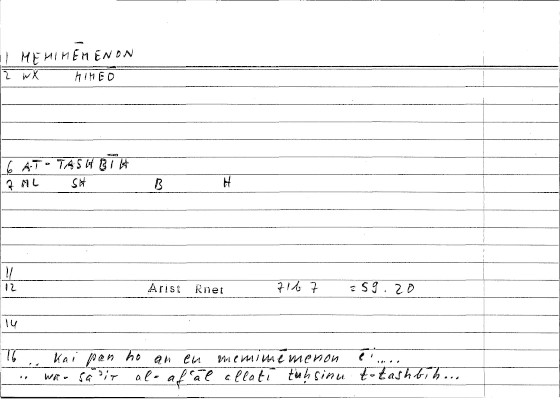 11 MEMIMĒMENON
2 WX MIMEO
6 AT-TASHBĪH
7 ML SH B H
11
12 Arist Rhet 71b7 =59.20
14
16 .. kai pan ho an eu memimēmenon ēi.....
.. wa-sāʾir al-afʿāl allatī tuḥsinu t-tashbīh...